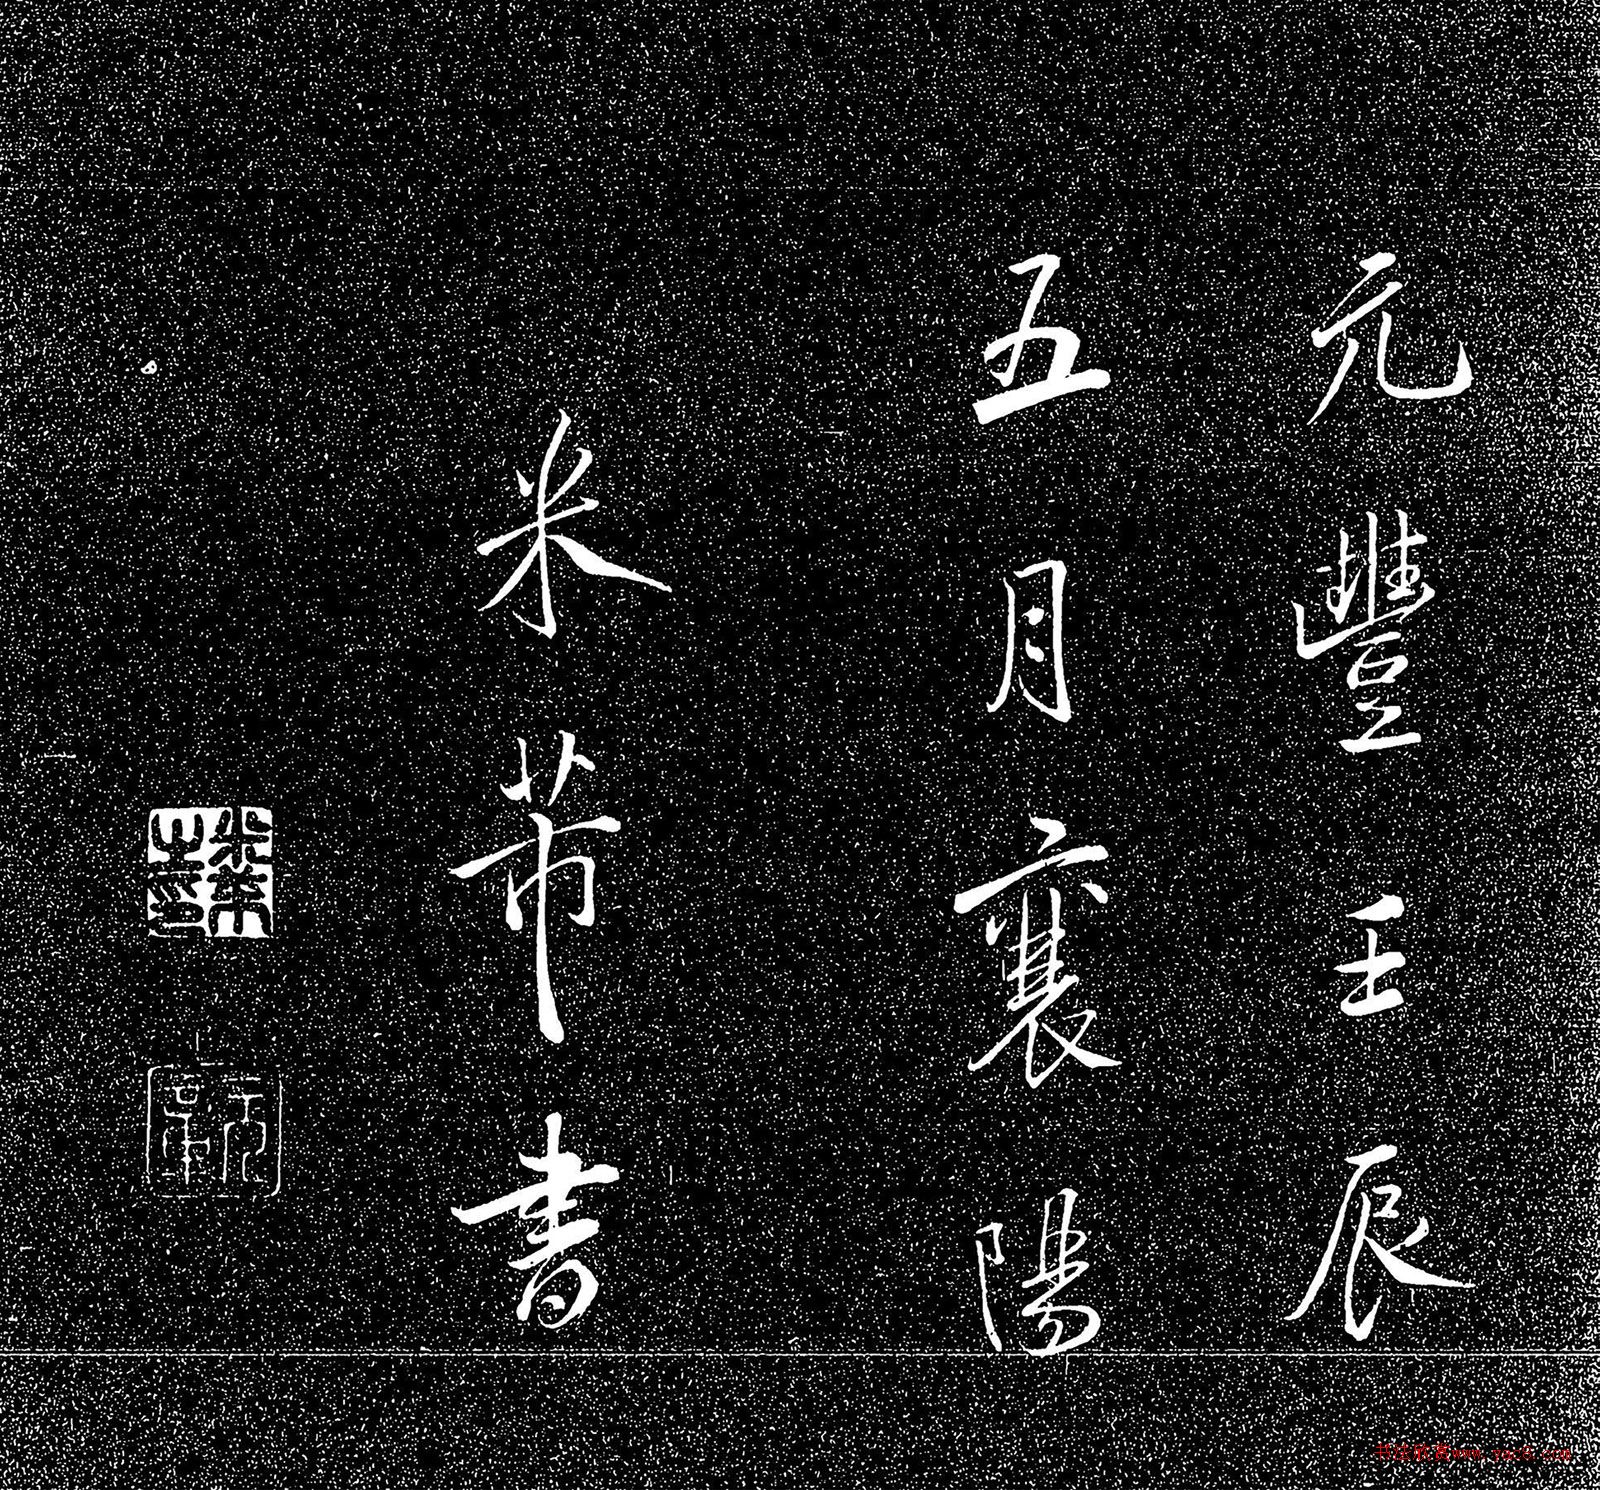 元豐壬辰
五月襄陽
米芾書
米芾之印
元章
书法欣赏www.yac8.com